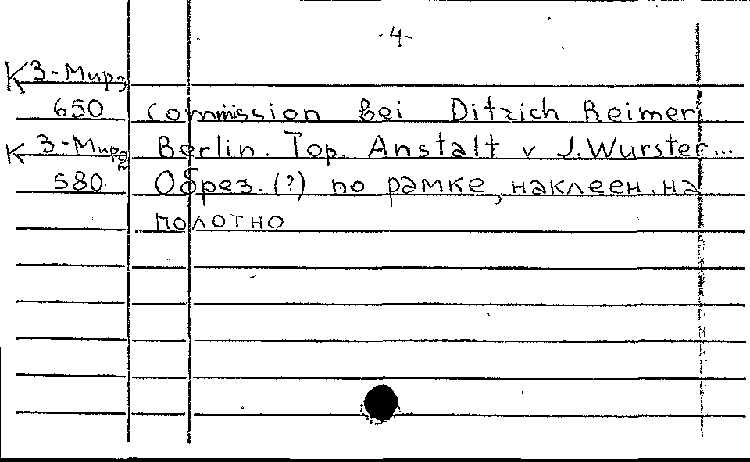 -4-
К 3-Мир 3
650 Commission bei Ditrich Reimer
К 3-Мир 2 Berlin. Top. Anstalt v J. Wurster...
580 Обрез. (?) по рамке, наклеен. на
полотно